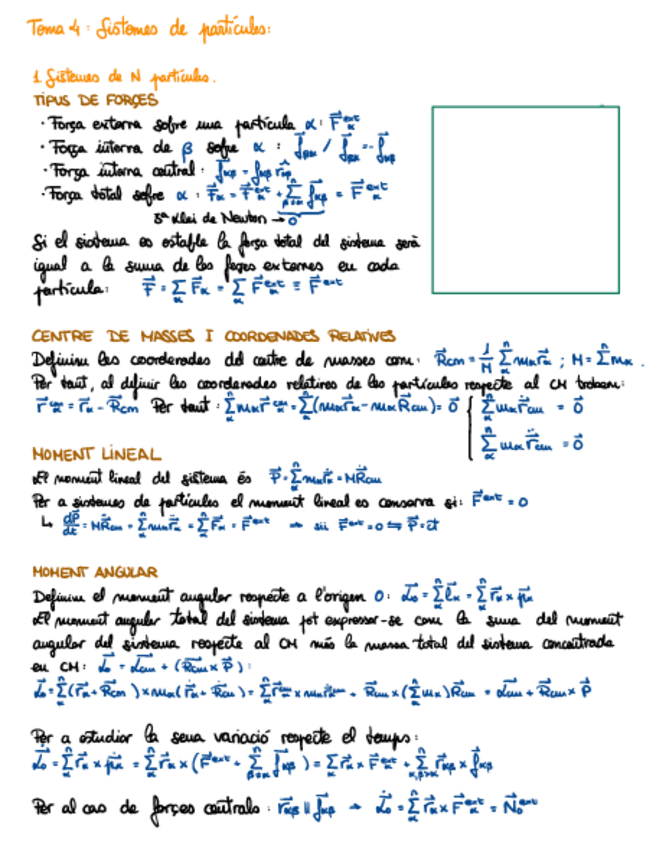 Tema 4: Sistemes de partícules:
1. Sistemes de N partícules.
TIPUS DE FORÇES
· Força externa sobre una partícula α: F⃗_α^ext
· Força interna de β sobre α : f⃗_βα / f⃗_βα = -f⃗_αβ
· Força interna central : f⃗_αβ = f_αβ r̂_αβ
· Força total sobre α : F⃗_α = F⃗_α^ext + Σ_{β≠α}^n f⃗_αβ = F⃗_α^ext
3ª Llei de Newton → 0
Si el sistema es estable la força total del sistema serà
igual a la suma de les forçes externes en cada
partícula: F⃗ = Σ_α^n F⃗_α = Σ_α^n F⃗_α^ext ≡ F⃗^ext
CENTRE DE MASSES I COORDENADES RELATIVES
Definim les coordenades del centre de masses com: R⃗_CM = 1/M Σ_α^n m_α r⃗_α ; M = Σ_α^n m_α .
Per tant, al definir les coordenades relatives de les partícules respecte al CM trobem:
r⃗_α^CM = r⃗_α - R⃗_CM Per tant : Σ_α^n m_α r⃗_α^CM = Σ_α^n (m_α r⃗_α - m_α R⃗_CM) = 0⃗ { Σ_α^n m_α ṙ⃗_CM = 0⃗
Σ_α^n m_α r̈⃗_CM = 0⃗
MOMENT LINEAL
El moment lineal del sistema és P⃗ = Σ_α^n m_α ṙ⃗_α = M Ṙ⃗_CM
Per a sistemes de partícules el moment lineal es conserva si: F⃗^ext = 0
↳ dP⃗/dt = M R̈⃗_CM = Σ_α^n m_α r̈⃗_α = Σ_α^n F⃗_α = F⃗^ext → sii F⃗^ext = 0 ⇆ P⃗ = ct
MOMENT ANGULAR
Definim el moment angular respecte a l'origen O: L⃗_o = Σ_α^n l⃗_α = Σ_α^n r⃗_α × p⃗_α
El moment angular total del sistema pot expressar-se com la suma del moment
angular del sistema respecte al CM més la massa total del sistema concentrada
en CM: L⃗_o = L⃗_CM + (R⃗_CM × P⃗) :
L⃗_o = Σ_α^n (r⃗_α + R⃗_CM) × m_α (ṙ⃗_α + Ṙ⃗_CM) = Σ_α^n r⃗_α^CM × m_α ṙ⃗_α^CM + R⃗_CM × (Σ_α^n m_α) Ṙ⃗_CM = L⃗_CM + R⃗_CM × P⃗
Per a estudiar la seua variació respecte el temps:
L̇⃗_o = Σ_α^n r⃗_α × ṗ⃗_α = Σ_α^n r⃗_α × (F⃗_α^ext + Σ_{β≠α}^n f⃗_αβ) = Σ_α r⃗_α × F⃗_α^ext + Σ_{α,β>α}^n r⃗_αβ × f⃗_αβ
Per al cas de forçes centrals : r⃗_αβ ∥ f⃗_αβ → L̇⃗_o = Σ_α^n r⃗_α × F⃗_α^ext = N⃗_o^ext